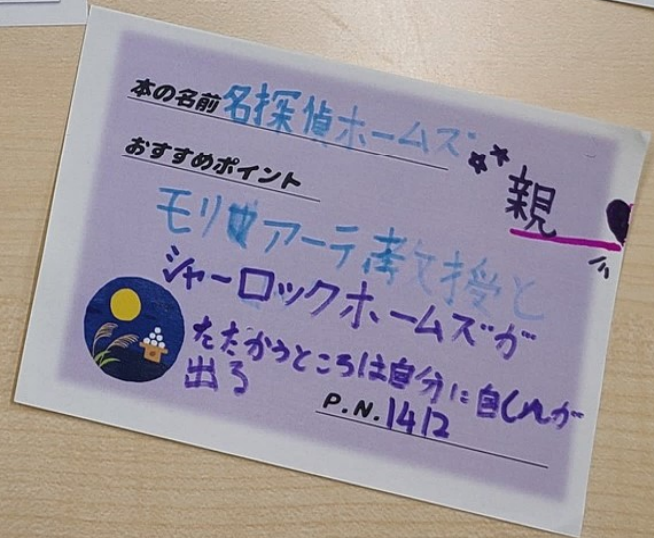 本の名前 名探偵ホームズ
親
おすすめポイント
モリアーテ教授と
シャーロックホームズが
たたかうところは自分に自しんが
出る
P.N. 1412